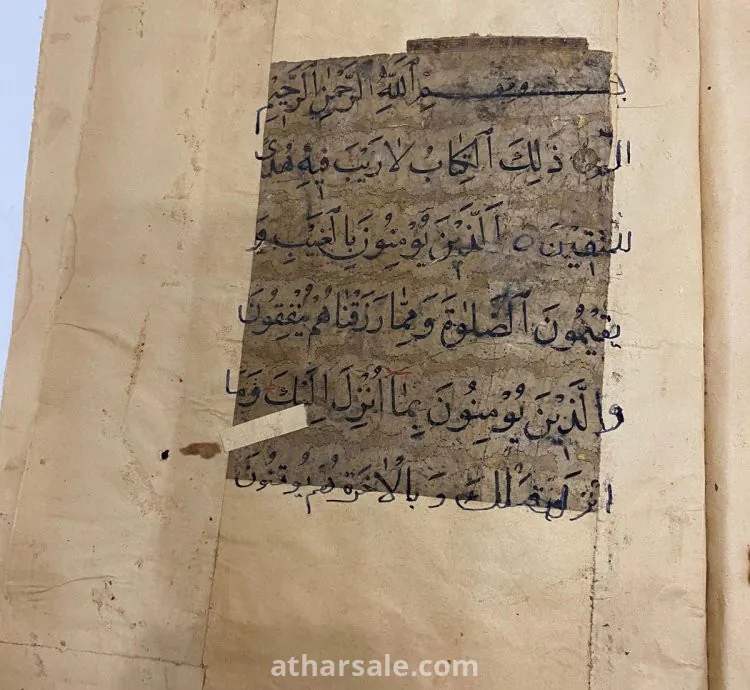 بسم الله الرَّحْمٰنِ الرَّحِيْمِ
الم ذَلِكَ الْكِتَابُ لَا رَيْبَ فِيْهِ هُدًى
لِلْمُتَّقِيْنَ ٥ اَلَّذِيْنَ يُؤْمِنُوْنَ بِالْغَيْبِ وَ
يُقِيْمُوْنَ الصَّلٰوةَ وَمِمَّا رَزَقْنَاهُمْ يُنْفِقُوْنَ
وَالَّذِيْنَ يُؤْمِنُوْنَ بِمَآ اُنْزِلَ اِلَيْكَ وَمَا
انزل من قبلك وَ بِالْاٰخِرَةِ هُمْ يُوْقِنُوْنَ
atharsale.com